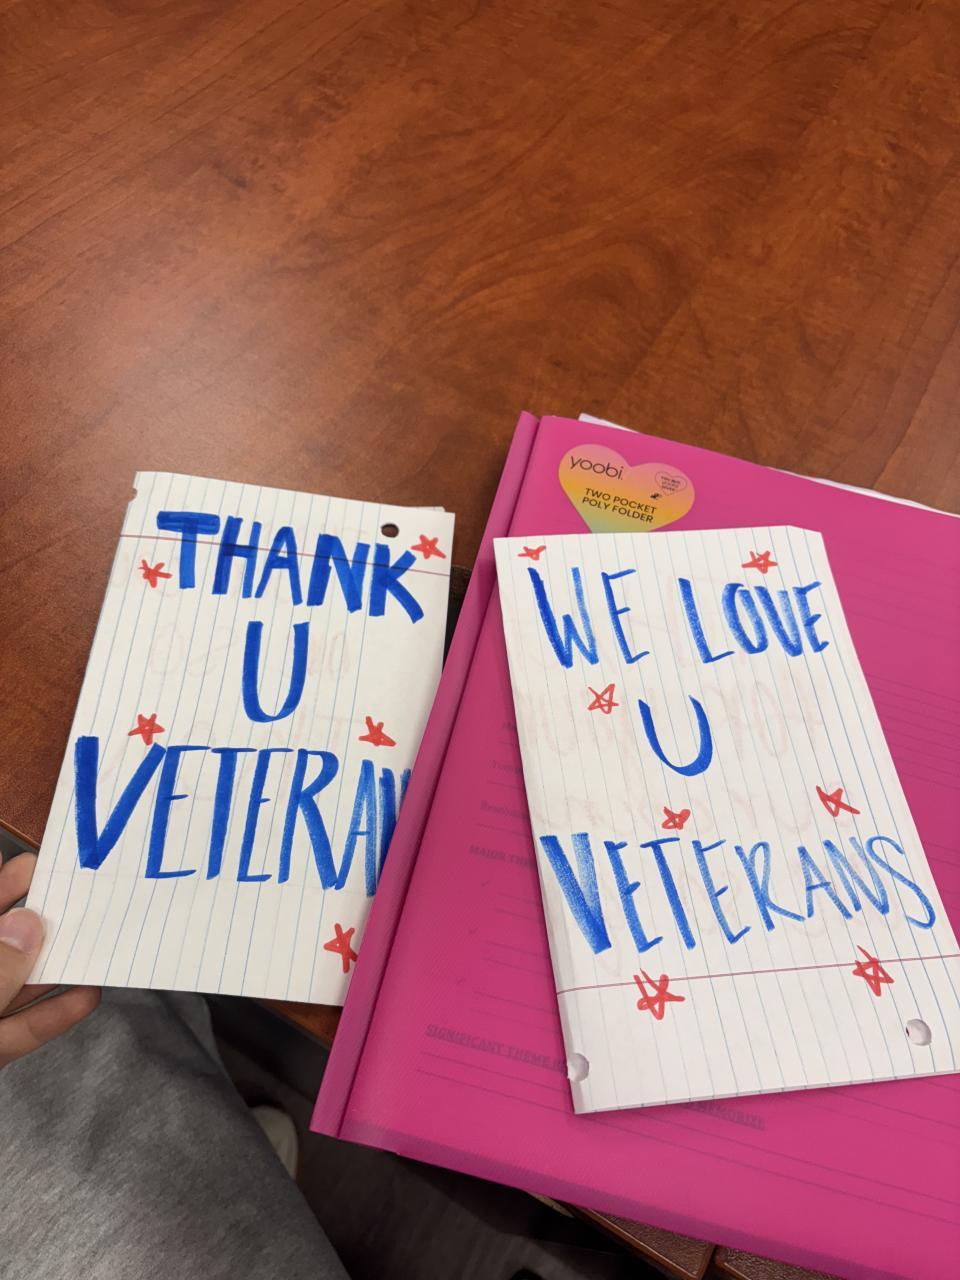 THANK
U
VETERAN
yoobi
TWO POCKET
POLY FOLDER
WE LOVE
U
VETERANS
MAJOR THE
SIGNIFICANT THEME
MEMORIZE